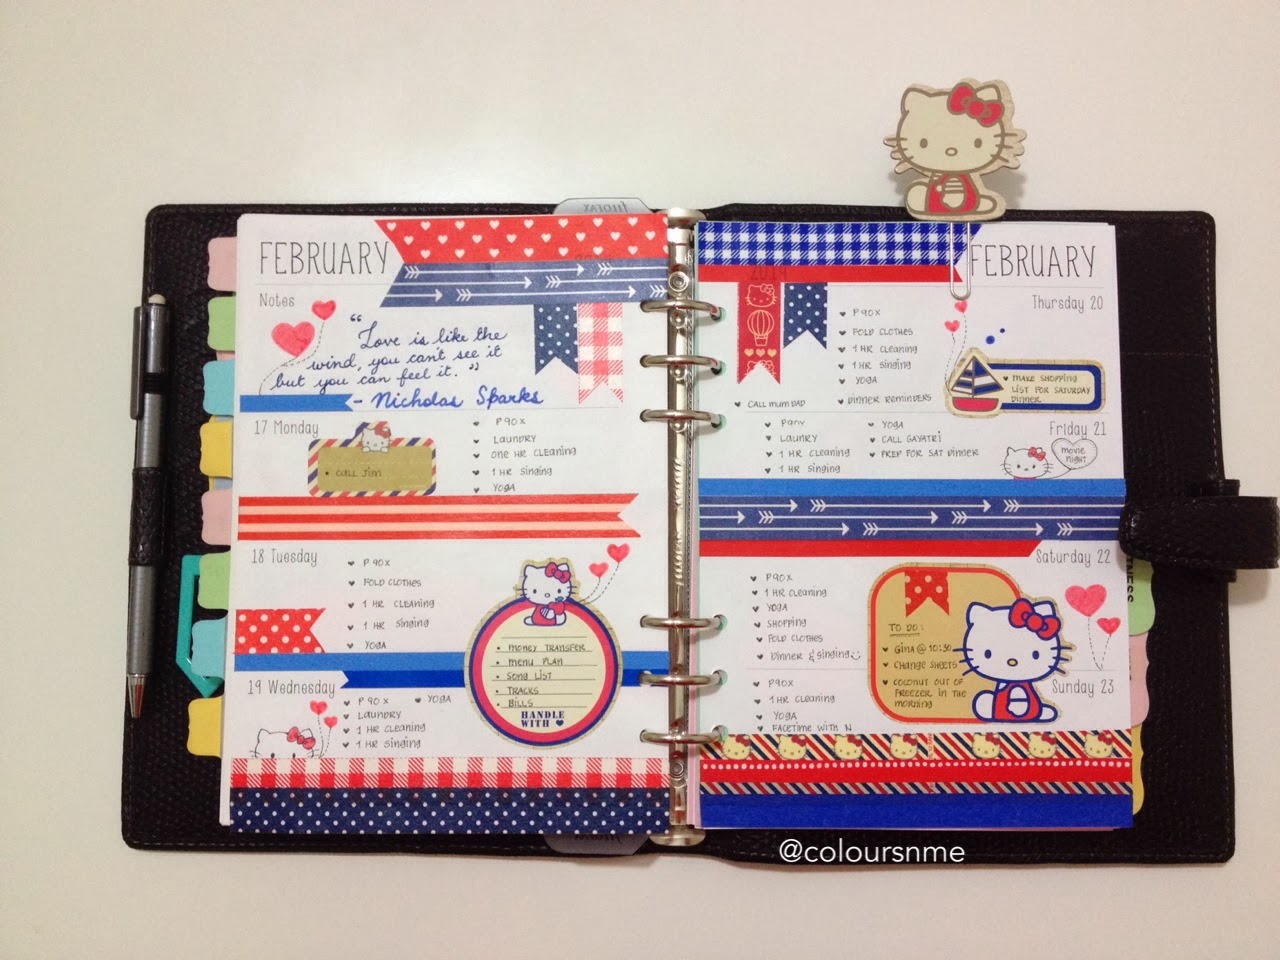 FEBRUARY
Notes
"Love is like the
wind, you can't see it
but you can feel it."
- Nicholas Sparks
17 Monday
• CALL JIM
P90X
LAUNDRY
ONE HR CLEANING
1 HR SINGING
YOGA
18 Tuesday
P 90X
FOLD CLOTHES
1 HR CLEANING
1 HR SINGING
YOGA
• MONEY TRANSFER
• MENU PLAN
• SONG LIST
• TRACKS
• BILLS
HANDLE
WITH ♥
19 Wednesday
P 90X
YOGA
LAUNDRY
1 HR CLEANING
1 HR SINGING
FILOFAX
FEBRUARY
2014
Thursday 20
P90X
FOLD CLOTHES
1 HR CLEANING
1 HR SINGING
YOGA
DINNER REMINDERS
CALL MUM DAD
MAKE SHOPPING
LIST FOR SATURDAY
DINNER
Friday 21
P90X
LAUNRY
1 HR CLEANING
1 HR SINGING
YOGA
CALL GAYATRI
PREP FOR SAT DINNER
MOVIE
NIGHT
Saturday 22
P90X
1 HR CLEANING
YOGA
SHOPPING
FOLD CLOTHES
DINNER & SINGING
TO DO:
GINA @ 10:30
CHANGE SHEETS
COCONUT OUT OF
FREEZER IN THE
MORNING
Sunday 23
P90X
1 HR CLEANING
YOGA
FACETIME WITH N
@coloursnme